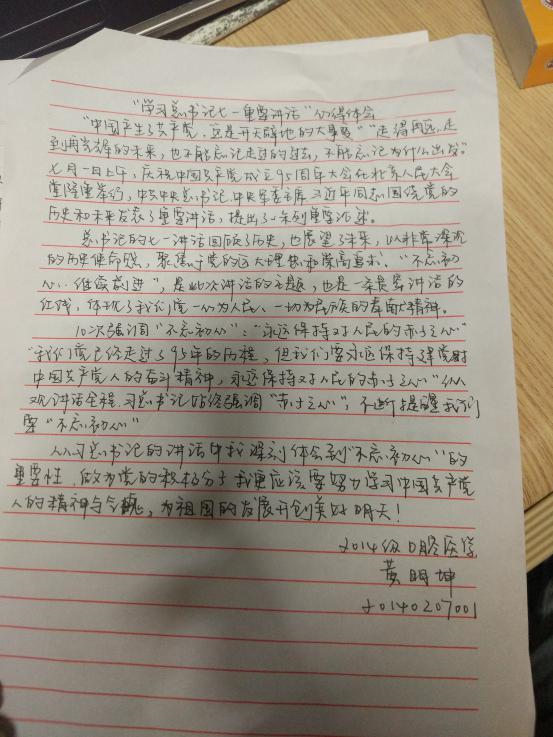 “学习总书记七一重要讲话”心得体会
“中国产生了共产党，这是开天辟地的大事变”“走得再远、走
到再光辉的未来，也不能忘记走过的过去，不能忘记为什么出发。”
七月一日上午，庆祝中国共产党成立95周年大会在北京人民大会
堂隆重举行，中共中央总书记、中央军委主席习近平同志围绕党的
历史和未来发表了重要讲话，提出了一系列重要论述。
总书记的七一讲话回顾了历史，也展望了未来，以非常深沉
的历史使命感，聚焦于党的远大理想和崇高追求。“不忘初
心、继续前进”，是此次讲话的主题，也是一条贯穿讲话的
红线，体现了我们党一心为人民、一切为民族的奉献大精神。
10次强调“不忘初心”：“永远保持对人民的赤子之心”
“我们党已经走过了95年的历程，但我们要永远保持建党时
中国共产党人的奋斗精神，永远保持对人民的赤子之心”纵
观讲话全程，习总书记始终强调“赤子之心”，不断提醒我们
要“不忘初心”
从习总书记的讲话中我深刻体会到“不忘初心”的
重要性，做为党的积极分子我更应该要努力学习中国共产党
人的精神与气概，为祖国的发展开创美好明天！
2014级口腔医学
黄明坤
20140207001